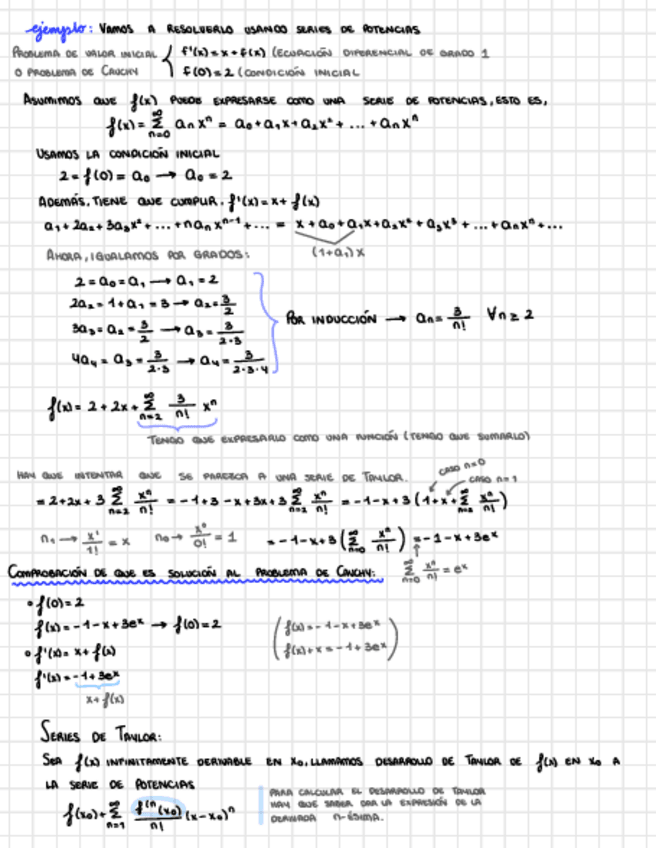 ejemplo: VAMOS A RESOLVERLO USANDO SERIES DE POTENCIAS
PROBLEMA DE VALOR INICIAL { f'(x) = x + f(x) (ECUACIÓN DIFERENCIAL DE GRADO 1
O PROBLEMA DE CAUCHY { f(0) = 2 (CONDICIÓN INICIAL
ASUMIMOS QUE f(x) PUEDE EXPRESARSE COMO UNA SERIE DE POTENCIAS, ESTO ES,
f(x) = ∑_{n=0}^{∞} aₙxⁿ = a₀ + a₁x + a₂x² + ... + aₙxⁿ
USAMOS LA CONDICIÓN INICIAL
2 = f(0) = a₀ → a₀ = 2
ADEMÁS, TIENE QUE CUMPLIR. f'(x) = x + f(x)
a₁ + 2a₂ + 3a₃x² + ... + naₙxⁿ⁻¹ + ... = x + a₀ + a₁x + a₂x² + a₃x³ + ... + aₙxⁿ + ...
(1+a₁)x
AHORA, IGUALAMOS POR GRADOS:
2 = a₀ = a₁ → a₁ = 2
2a₂ = 1 + a₁ = 3 → a₂ = 3/2
3a₃ = a₂ = 3/2 → a₃ = 3/(2·3)
4a₄ = a₃ = 3/(2·3) → a₄ = 3/(2·3·4)
POR INDUCCIÓN → aₙ = 3/n! ∀n ≥ 2
f(x) = 2 + 2x + ∑_{n=2}^{∞} 3/n! xⁿ
TENGO QUE EXPRESARLO COMO UNA FUNCIÓN (TENGO QUE SUMARLO)
HAY QUE INTENTAR QUE SE PAREZCA A UNA SERIE DE TAYLOR.
CASO n=0
CASO n=1
= 2 + 2x + 3 ∑_{n=2}^{∞} xⁿ/n! = -1 + 3 - x + 3x + 3 ∑_{n=2}^{∞} xⁿ/n! = -1 - x + 3 (1 + x + ∑_{n=2}^{∞} xⁿ/n!)
n₁ → x¹/1! = x n₀ → x⁰/0! = 1 = -1 - x + 3 (∑_{n=0}^{∞} xⁿ/n!) = -1 - x + 3eˣ
∑_{n=0}^{∞} xⁿ/n! = eˣ
COMPROBACIÓN DE QUE ES SOLUCIÓN AL PROBLEMA DE CAUCHY:
• f(0) = 2
f(x) = -1 - x + 3eˣ → f(0) = 2
• f'(x) = x + f(x)
f'(x) = -1 + 3eˣ
x + f(x)
(f(x) = -1 - x + 3eˣ
f(x) + x = -1 + 3eˣ)
SERIES DE TAYLOR:
SEA f(x) INFINITAMENTE DERIVABLE EN x₀, LLAMAMOS DESARROLLO DE TAYLOR DE f(x) EN x₀ A
LA SERIE DE POTENCIAS
f(x₀) + ∑_{n=1}^{∞} f⁽ⁿ(x₀)/n! (x - x₀)ⁿ
PARA CALCULAR EL DESARROLLO DE TAYLOR
HAY QUE SABER DAR LA EXPRESIÓN DE LA
DERIVADA n-ÉSIMA.